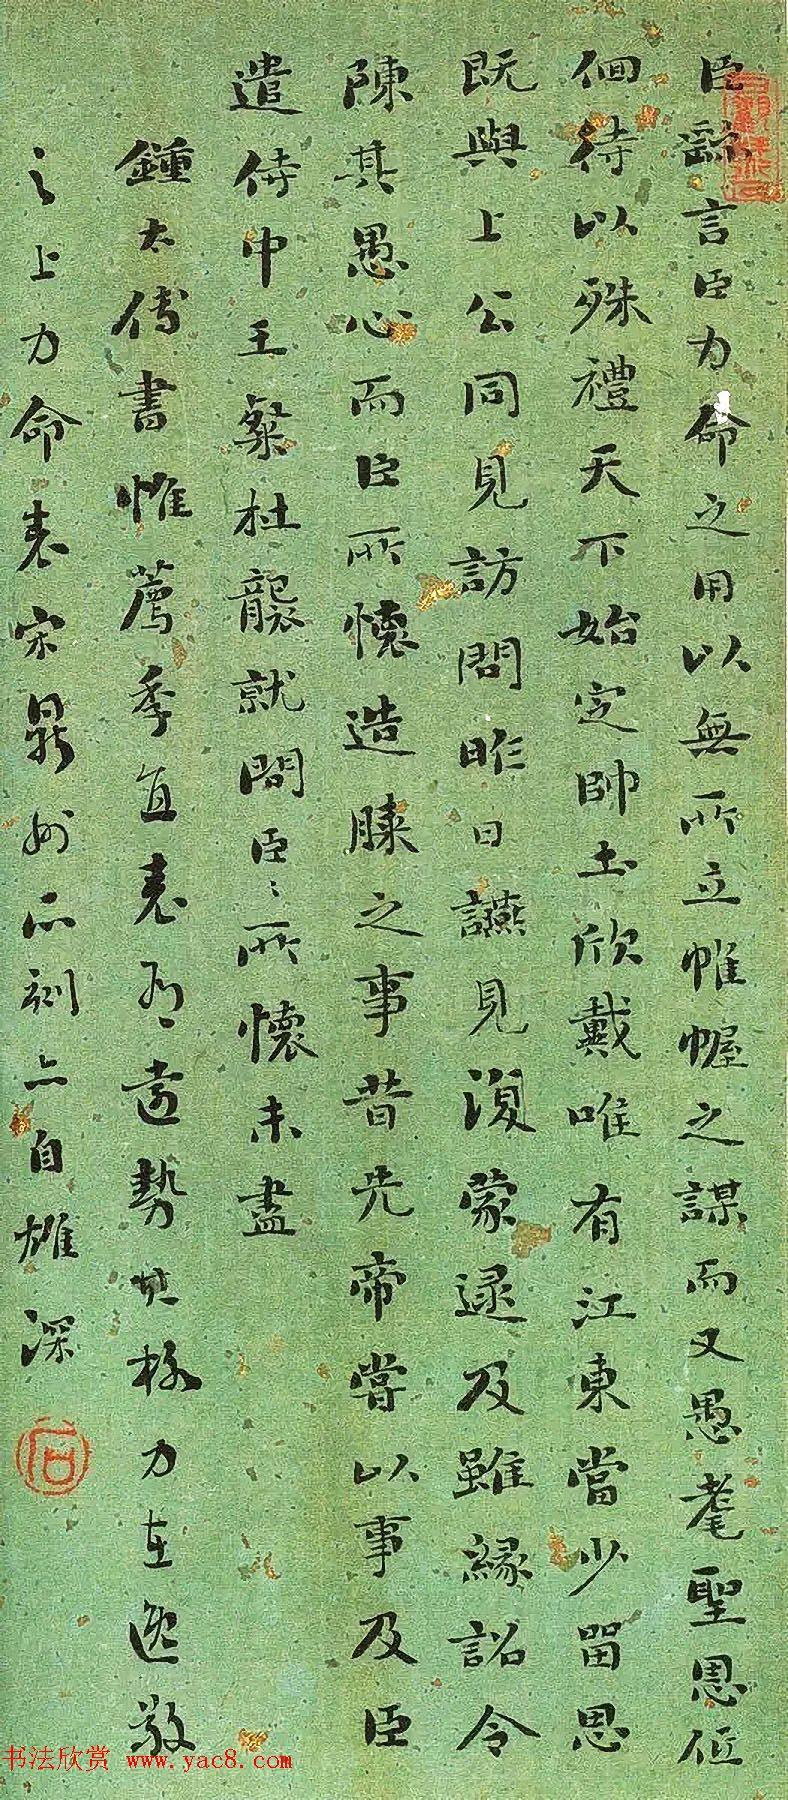 臣繇言臣力命之用以無所立帷幄之謀而又愚耄聖恩低
佪待以殊禮天下始定帥土欣戴唯有江東當少留思
既與上公同見訪問昨日讌見復蒙逮及雖緣詔令
陳其愚心而臣所懷造膝之事昔先帝嘗以事及臣
遣侍中王粲杜襲就問臣〻所懷未盡
鍾太傅書惟薦季直表為遒勢其榜力在逸敬
之上力命表宋鼎帖石刻亦自雄深
石
书法欣赏 www.yac8.com